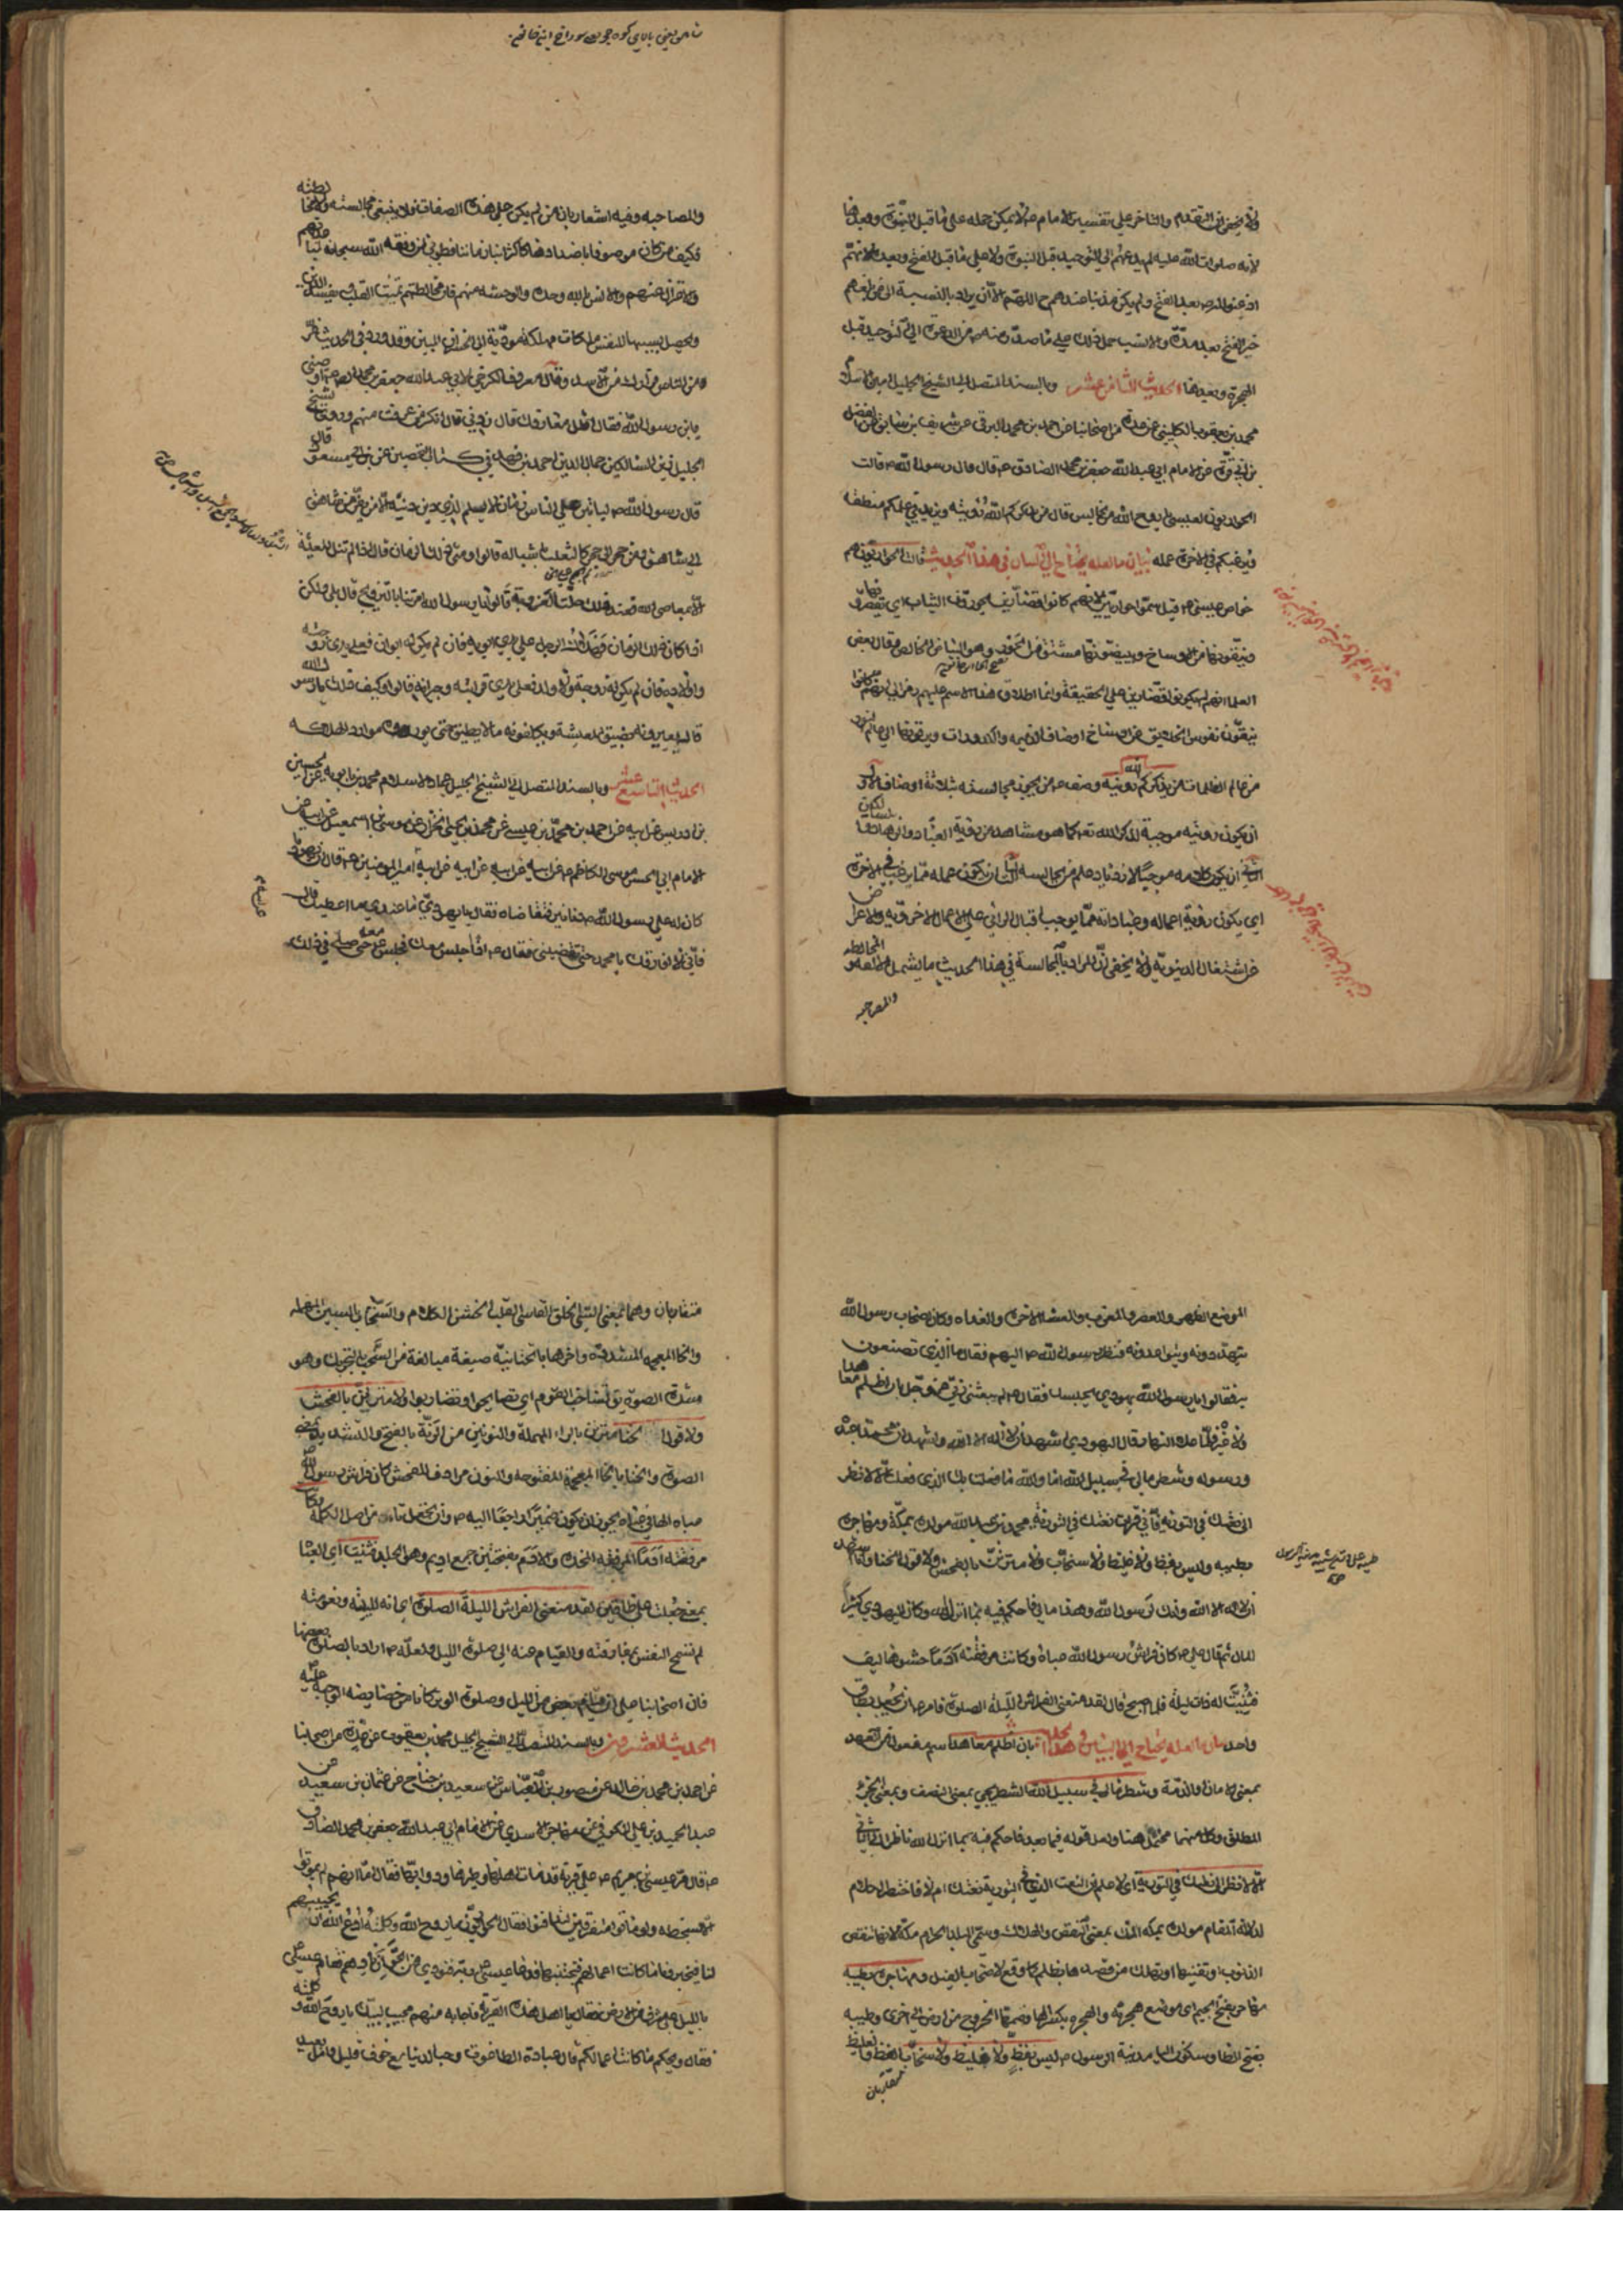 ولا يخفى ان التقدم والتاخر على تفسير الامام م لا يمكن حمله على ما قبل النبوة وبعدها
لانه صلوات الله عليه لم يدعهم الى التوحيد قبل النبوة ولا على ما قبل الفتح وبعده لانهم
اذعنوا بعد الفتح ولم يكن ذنبا عندهم ح اللهم الا ان يراد بالنسبة الى
خبر الفتح بعد مدة والانسب حمل ذلك على ما صدر منه م من الدعوة الى التوحيد قبل
الهجرة وبعدها الحديث الثامن عشر وبالسند المتصل الى الشيخ الجليل امين الاسلام
محمد بن يعقوب الكليني عن عدة من اصحابنا عن احمد بن محمد البرقي عن شريف بن سابق عن الفضل
بن ابي قرة عن الامام ابي عبد الله جعفر بن محمد الصادق م قال قال رسول الله م قالت
الحواريون لعيسى يا روح الله من نجالس قال من يذكركم الله رؤيته ويزيد في علمكم منطقه
ويرغبكم في الاخرة عمله بيان ما لعله يحتاج الى البيان في هذا الحديث قالت الحواريون هم
خواص عيسى م قيل سموا حواريين لانهم كانوا قصارين يحورون الثياب اي يقصرونها
وينقونها من الاوساخ ويبيضونها مشتق من الحور وهو البياض الخالص وقال بعض
العلماء انهم لم يكونوا قصارين على الحقيقة وانما اطلاق هذا الاسم عليهم رمز الى انهم كانوا
ينقون نفوس الخلايق من اوساخ اوصاف الذميمة والكدورات ويرقونها الى عالم النور
من عالم الظلمات من يذكركم الله رؤيته وصف م من ينبغي مجالسته بثلاثة اوصاف الاول
ان يكون رؤيته موجبة لذكر الله تع كما هو مشاهد من رؤية العباد والزهاد
الثاني ان يكون كلامه موجبا لازدياد علم من يجالسه الثالث ان يكون عمله مما يرغب في الاخرة
اي يكون رؤية اعماله وعباداته مما يوجب اقبال الرائي على الاعمال الاخروية والاعراض
عن اشتغال الدنيوية ولا يخفى ان المراد بالمجالسة في هذا الحديث ما يشمل المخالطة
والمصاحبة
والمصاحبة وفيه اشعار بان من لم يكن على هذه الصفات فلا ينبغي مجالسته ولا مخالطته
فكيف من كان موصوفا باضدادها كاكثر ابناء زماننا فطوبى لمن وفقه الله سبحانه
والاعتزال عنهم والانس بالله وحده والوحشة منهم فان مخالطتهم تميت القلب وتفسد الدين
ويحصل بسببها للنفس ملكات مهلكة مودية الى الخسران المبين وقد ورد في الحديث فر
من الناس فرارك من الاسد وقال معروف الكرخي لابي عبد الله جعفر بن محمد الصادق م اوصني
يا بن رسول الله فقال اقلل معارفك قال زدني قال انكر من عرفت منهم وروى الشيخ
الجليل زين السالكين جمال الدين احمد بن فهد في كتاب التحصين عن ابن مسعود قال
قال رسول الله م لياتين على الناس زمان لا يسلم لذي دين دينه الا من يفر من شاهق
الى شاهق ومن حجر الى حجر كالثعلب باشباله قالوا ومتى ذلك الزمان قال اذا لم تنل المعيشة
الا بمعاصي الله فعند ذلك حلت العزوبة قالوا يا رسول الله امرتنا بالتزويج قال بلى ولكن
اذا كان ذلك الزمان فهلاك الرجل على يدي ابويه فان لم يكن له ابوان فعلى يدي زوجته
واولاده فان لم يكن له زوجة ولا ولد فعلى يدي قرابته وجيرانه قالوا وكيف ذلك يا رسول الله
قال يعيرونه بضيق المعيشة ويكلفونه ما لا يطيق حتى يوردوه موارد الهلكة
الحديث التاسع عشر وبالسند المتصل الى الشيخ الجليل عماد الاسلام محمد بن بابويه عن الحسين
بن ادريس عن ابيه عن احمد بن محمد بن عيسى عن محمد بن يحيى الخزاز عن موسى بن اسمعيل عن ابيه عن
الامام ابي الحسن موسى الكاظم م عن ابيه عن ابيه عن ابيه عن ابيه امير المؤمنين م قال ان يهوديا
كان له على رسول الله م دنانير فتقاضاه فقال يا يهودي ما عندي ما اعطيك قال
فاني لا افارقك يا محمد حتى تقضيني فقال م اذا اجلس معك فجلس معه حتى صلى في ذلك
الموضع الظهر والعصر والمغرب والعشاء الاخرة والغداة وكان اصحاب رسول الله
يتهددونه ويتواعدونه فنظر رسول الله م اليهم فقال ما الذي تصنعون
به فقالوا يا رسول الله يهودي يحبسك فقال م لم يبعثني ربي عز وجل بان اظلم معاهدا
ولا غيره فلما علا النهار قال اليهودي اشهد ان لا اله الا الله واشهد ان محمدا عبده
ورسوله وشطر مالي في سبيل الله اما والله ما فعلت بك الذي فعلت الا لانظر
الى نعتك في التورية فاني قرات نعتك في التورية محمد بن عبد الله مولده بمكة ومهاجره
بطيبة وليس بفظ ولا غليظ ولا سخاب ولا مترنن بالفحش ولا قول الخنا وانا اشهد
ان لا اله الا الله وانك رسول الله وهذا مالي فاحكم فيه بما انزل الله وكان اليهودي كثير
المال ثم قال علي م كان فراش رسول الله عباءة وكانت مرفقته ادما حشوها ليف
فثنيت له ذات ليلة فلما اصبح قال لقد منعني الفراش الليلة الصلوة فامر م ان يجعل بطاق
واحد بيان ما لعله يحتاج الى البيان في هذا الحديث بان اظلم معاهدا اسم مفعول من العهد
بمعنى الامان والذمة وشطر مالي في سبيل الله الشطر يجي بمعنى النصف وبمعنى الجزء
المطلق وكل منهما محتمل هنا ولعل قوله فيما بعد فاحكم فيه بما انزل الله ناظر الى الثاني
الا لانظر الى نعتك في التورية اي لاعلم ان النعت الذي في التورية نعتك ام لا فاختبر الحلم
لدلالة المقام مولده بمكة المك بمعنى النقص والهلاك وسمي البلد الحرام مكة لانها تنقص
الذنوب وتفنيها او تهلك من قصدها بظلم كما وقع لاصحاب الفيل ومهاجره بطيبة
مهاجر بفتح الجيم اي موضع هجرته والهجرة بكسر الهاء وضمها الخروج من ارض الى اخرى وطيبة
بفتح الطاء وسكون الياء مدينة الرسول م ليس بفظ ولا غليظ ولا سخاب الفظ والغليظ
متقاربان
متقاربان وهما بمعنى السيئ الخلق القاسي القلب الخشن الكلام والسخاب بالسين المهملة
والخاء المعجمة المشددة واخرها باء تحتانية صيغة مبالغة من السخب بالتحريك وهو
شدة الصوت يق تساخب القوم اي تصايحوا وتضاربوا ولا مترنن بالفحش
ولا قول الخنا مترنن بالراء المهملة والنونين من الرنة بالفتح والتشديد بمعنى
الصوت والخنا بالخاء المعجمة المفتوحة والنون مرادف للفحش كان فراش رسول الله
عباءة الهاء في عباءه يجوز ان يكون ضميرا راجعا اليه م وان يحتمل تاء من اصل الكلمة وكانت
مرفقته ادما المرفقة المخدة والادم بفتحتين جمع اديم وهو الجلد فثنيت اي العباء
بمعنى جعلت على طاقين لقد منعني الفراش الليلة الصلوة اي انه للينه ونعومته
لم تسمح النفس بمفارقته والقيام عنه الى صلوة الليل ولعله م اراد بالصلوة بعضها
فان اصحابنا على ان قيام بعض من الليل وصلوة الوتر كانا من خصايصه الواجبة عليه
الحديث العشرون وبالسند المتصل الى الشيخ الجليل محمد بن يعقوب عن عدة من اصحابنا
عن احمد بن محمد بن خالد عن منصور بن العباس عن سعيد بن جناح عن عثمان بن سعيد عن
عبد الحميد بن علي الكوفي عن مهاجر الاسدي عن الامام ابي عبد الله جعفر بن محمد الصادق
م قال مر عيسى بن مريم م على قرية قد مات اهلها وطيرها ودوابها فقال اما انهم لم يموتوا
الا بسخطة ولو ماتوا متفرقين لتدافنوا فقال الحواريون يا روح الله وكلمته ادع الله ان يحييهم
لنا فيخبرونا ما كانت اعمالهم فنجتنبها فدعا عيسى م ربه فنودي من الجو ان نادهم فقام عيسى
بالليل على شرف من الارض فقال يا اهل هذه القرية فاجابه منهم مجيب لبيك يا روح الله وكلمته
فقال ويحكم ما كانت اعمالكم قال عبادة الطاغوت وحب الدنيا مع خوف قليل وامل بعيد